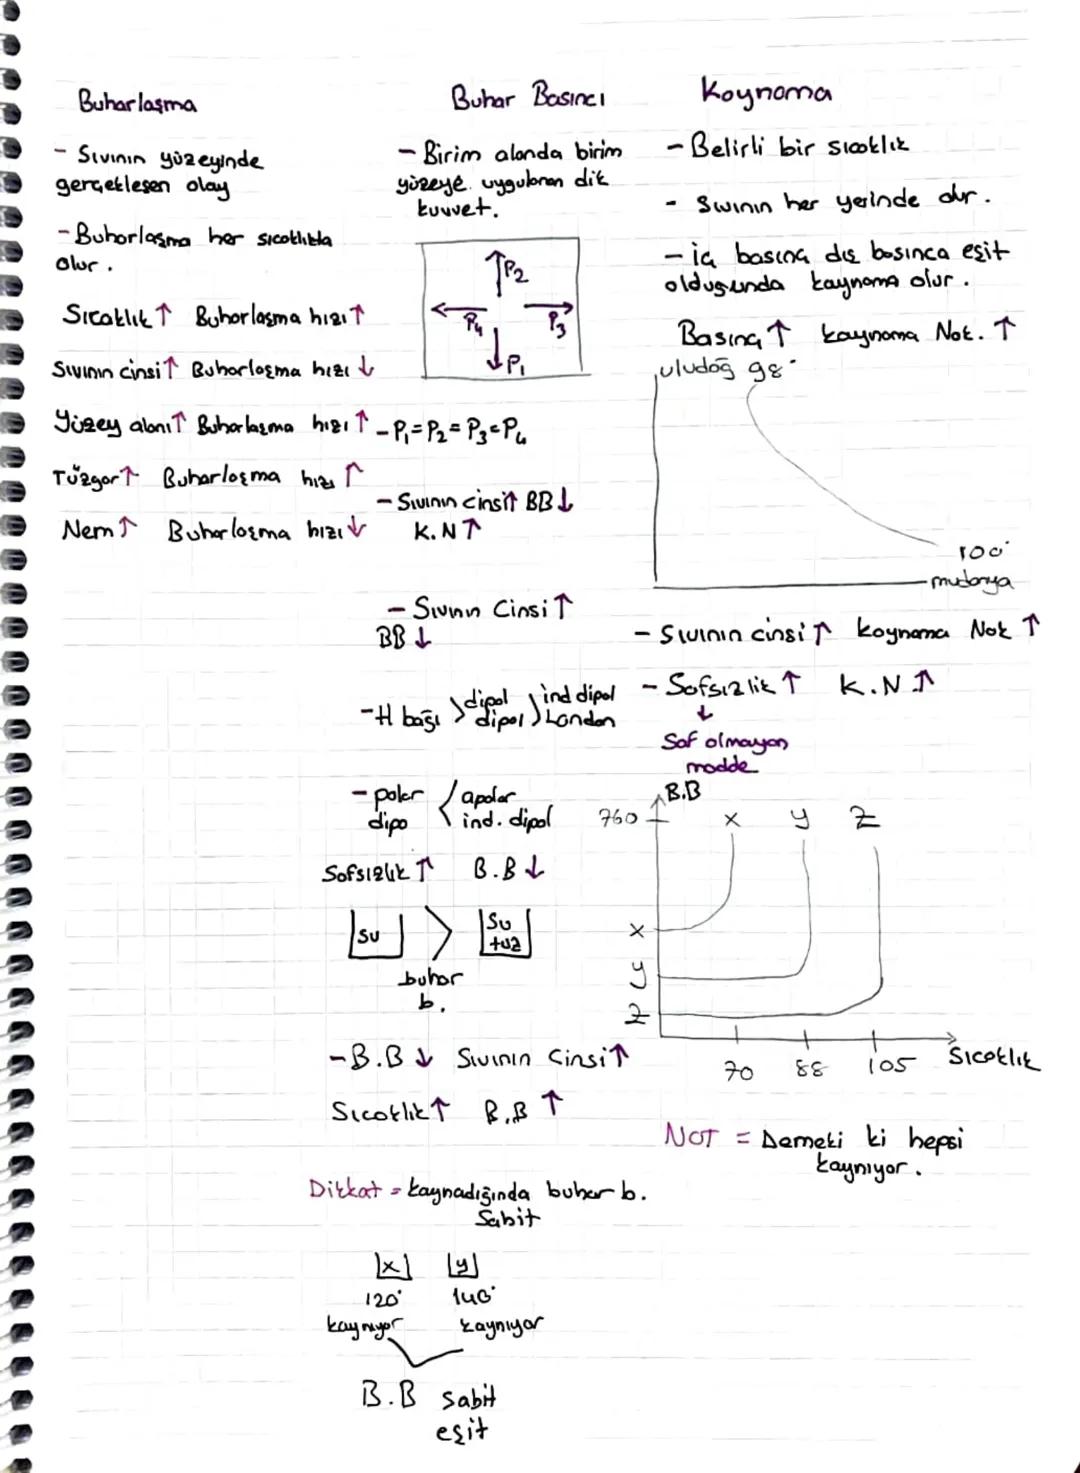 Buharlaşma
- Sıvının yüzeyinde
gerçekleşen olay
- Buharlaşma her sıcaklıkta
olur.
Sıcaklık ↑ Buharlaşma hızı ↑
Sıvının cinsi ↑ Buharlaşma hızı ↓
Yüzey alanı ↑ Buharlaşma hızı ↑
Rüzgar ↑ Buharlaşma hızı ↑
Nem ↑ Buharlaşma hızı ↓
Buhar Basıncı
- Birim alanda birim
yüzeye uygulanan dik
kuvvet.
P2
P4 P3
P1
- P1 = P2 = P3 = P4
- Sıvının cinsi ↑ BB ↓
K.N ↑
- Sıvının Cinsi ↑
BB ↓
- H bağı > dipol dipol > ind dipol London
- polar < apolar
dipo ind. dipol
Safsızlık ↑ B.B ↓
su > su
tuz
buhar
b.
- B.B ↓ Sıvının Cinsi ↑
Sıcaklık ↑ B.B ↑
Dikkat = kaynadığında buhar b.
Sabit
x y
120° 140°
kaynıyor kaynıyor
B.B sabit
eşit
Kaynama
- Belirli bir sıcaklık
- Sıvının her yerinde olur.
- iç basınç dış basınca eşit
olduğunda kaynama olur.
Basınç ↑ kaynama Nok. ↑
uludağ 98°
100°
mudanya
- Sıvının cinsi ↑ kaynama Nok ↑
- Safsızlık ↑ K.N ↑
↓
Saf olmayan
madde
B.B
760 x y z
x
y
z
70 88 105 Sıcaklık
NOT = Demekki ki hepsi
kaynıyor.